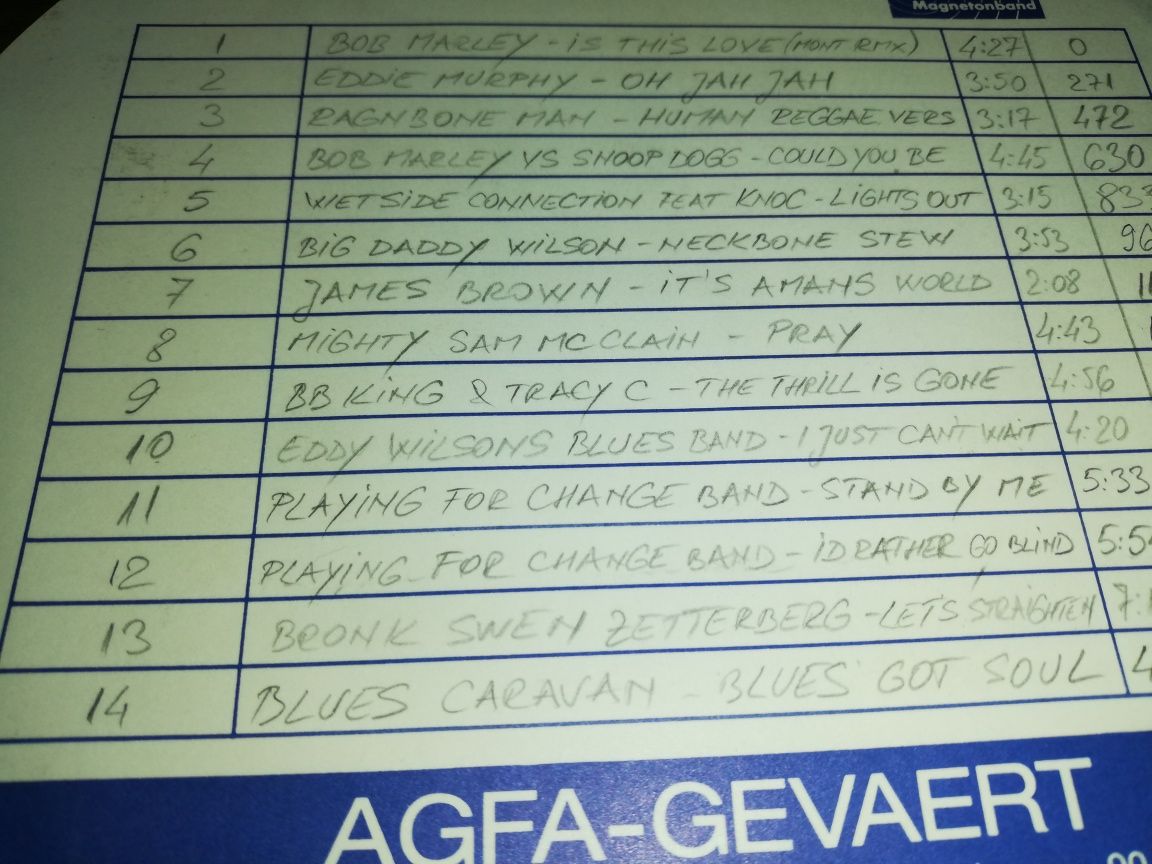 Magnetonband
1 BOB MARLEY - IS THIS LOVE (MONT RMX) 4:27 0
2 EDDIE MURPHY - OH JAH JAH 3:50 271
3 RAGNBONE MAN - HUMAN REGGAE VERS 3:17 472
4 BOB MARLEY VS SNOOP DOGG - COULD YOU BE 4:45 630
5 WETSIDE CONNECTION FEAT KNOC - LIGHTS OUT 3:15 833
6 BIG DADDY WILSON - NECKBONE STEW 3:53 96
7 JAMES BROWN - IT'S A MANS WORLD 2:08 11
8 MIGHTY SAM MC CLAIN - PRAY 4:43 1
9 BB KING & TRACY C - THE THRILL IS GONE 4:56
10 EDDY WILSONS BLUES BAND - I JUST CANT WAIT 4:20
11 PLAYING FOR CHANGE BAND - STAND BY ME 5:33
12 PLAYING FOR CHANGE BAND - ID RATHER GO BLIND 5:5
13 BRONK SWEN ZETTERBERG - LET'S STRAIGHTEN 7:
14 BLUES CARAVAN - BLUES GOT SOUL 4
AGFA-GEVAERT